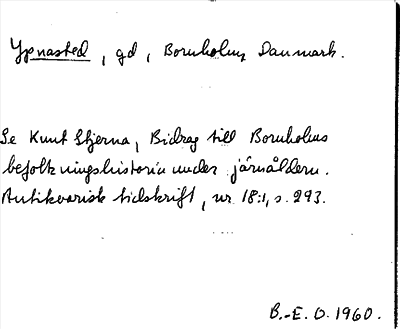 Ypnasted, gd, Bornholm, Danmark.
Se Knut Stjerna, Bidrag till Bornholms
befolkningshistoria under järnåldern.
Antikvarisk tidskrift, nr 18:1, s. 293.
B.-E. O. 1960.